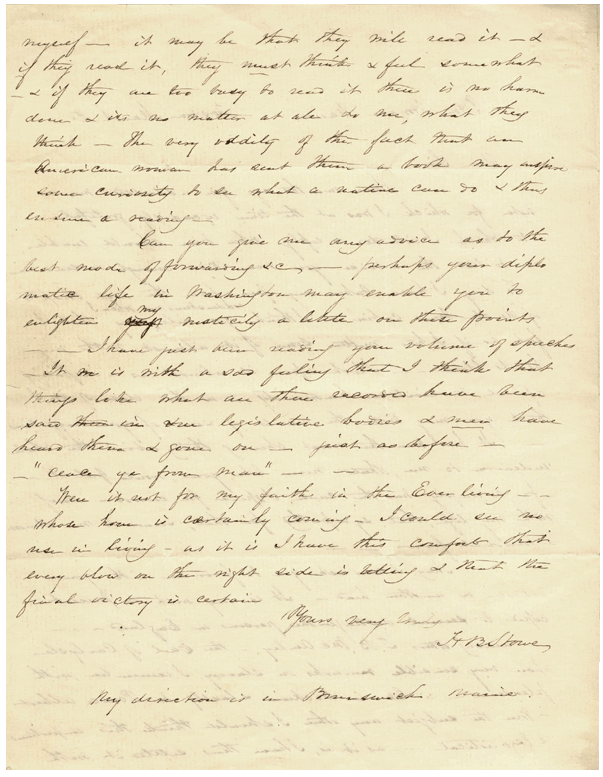 myself — it may be that they will read it — &
if they read it, they must think & feel somewhat
— & if they are too busy to read it there is no harm
done & it is no matter at all to me, what they
think — The very oddity of the fact that an
American woman has sent them a book may inspire
some curiosity to see what a native can do & thus
ensure a reading —
Can you give me any advice as to the
best mode of forwarding &c — perhaps your diplo
matic life in Washington may enable you to
enlighten my rusticity a little on these points
— — I have just been reading your volume of speeches
— It is with a sad feeling that I think that
things like what are there recorded have been
said in our legislative bodies & men have
heard them & gone on — just as before —
— "cease ye from man" — —
Were it not for my faith in the Everliving — -
whose hour is certainly coming — I could see no
use in living — as it is I have this comfort that
every blow on the right side is telling & that the
final victory is certain
Yours very truly
H B Stowe
My direction is in Brunswick Maine.